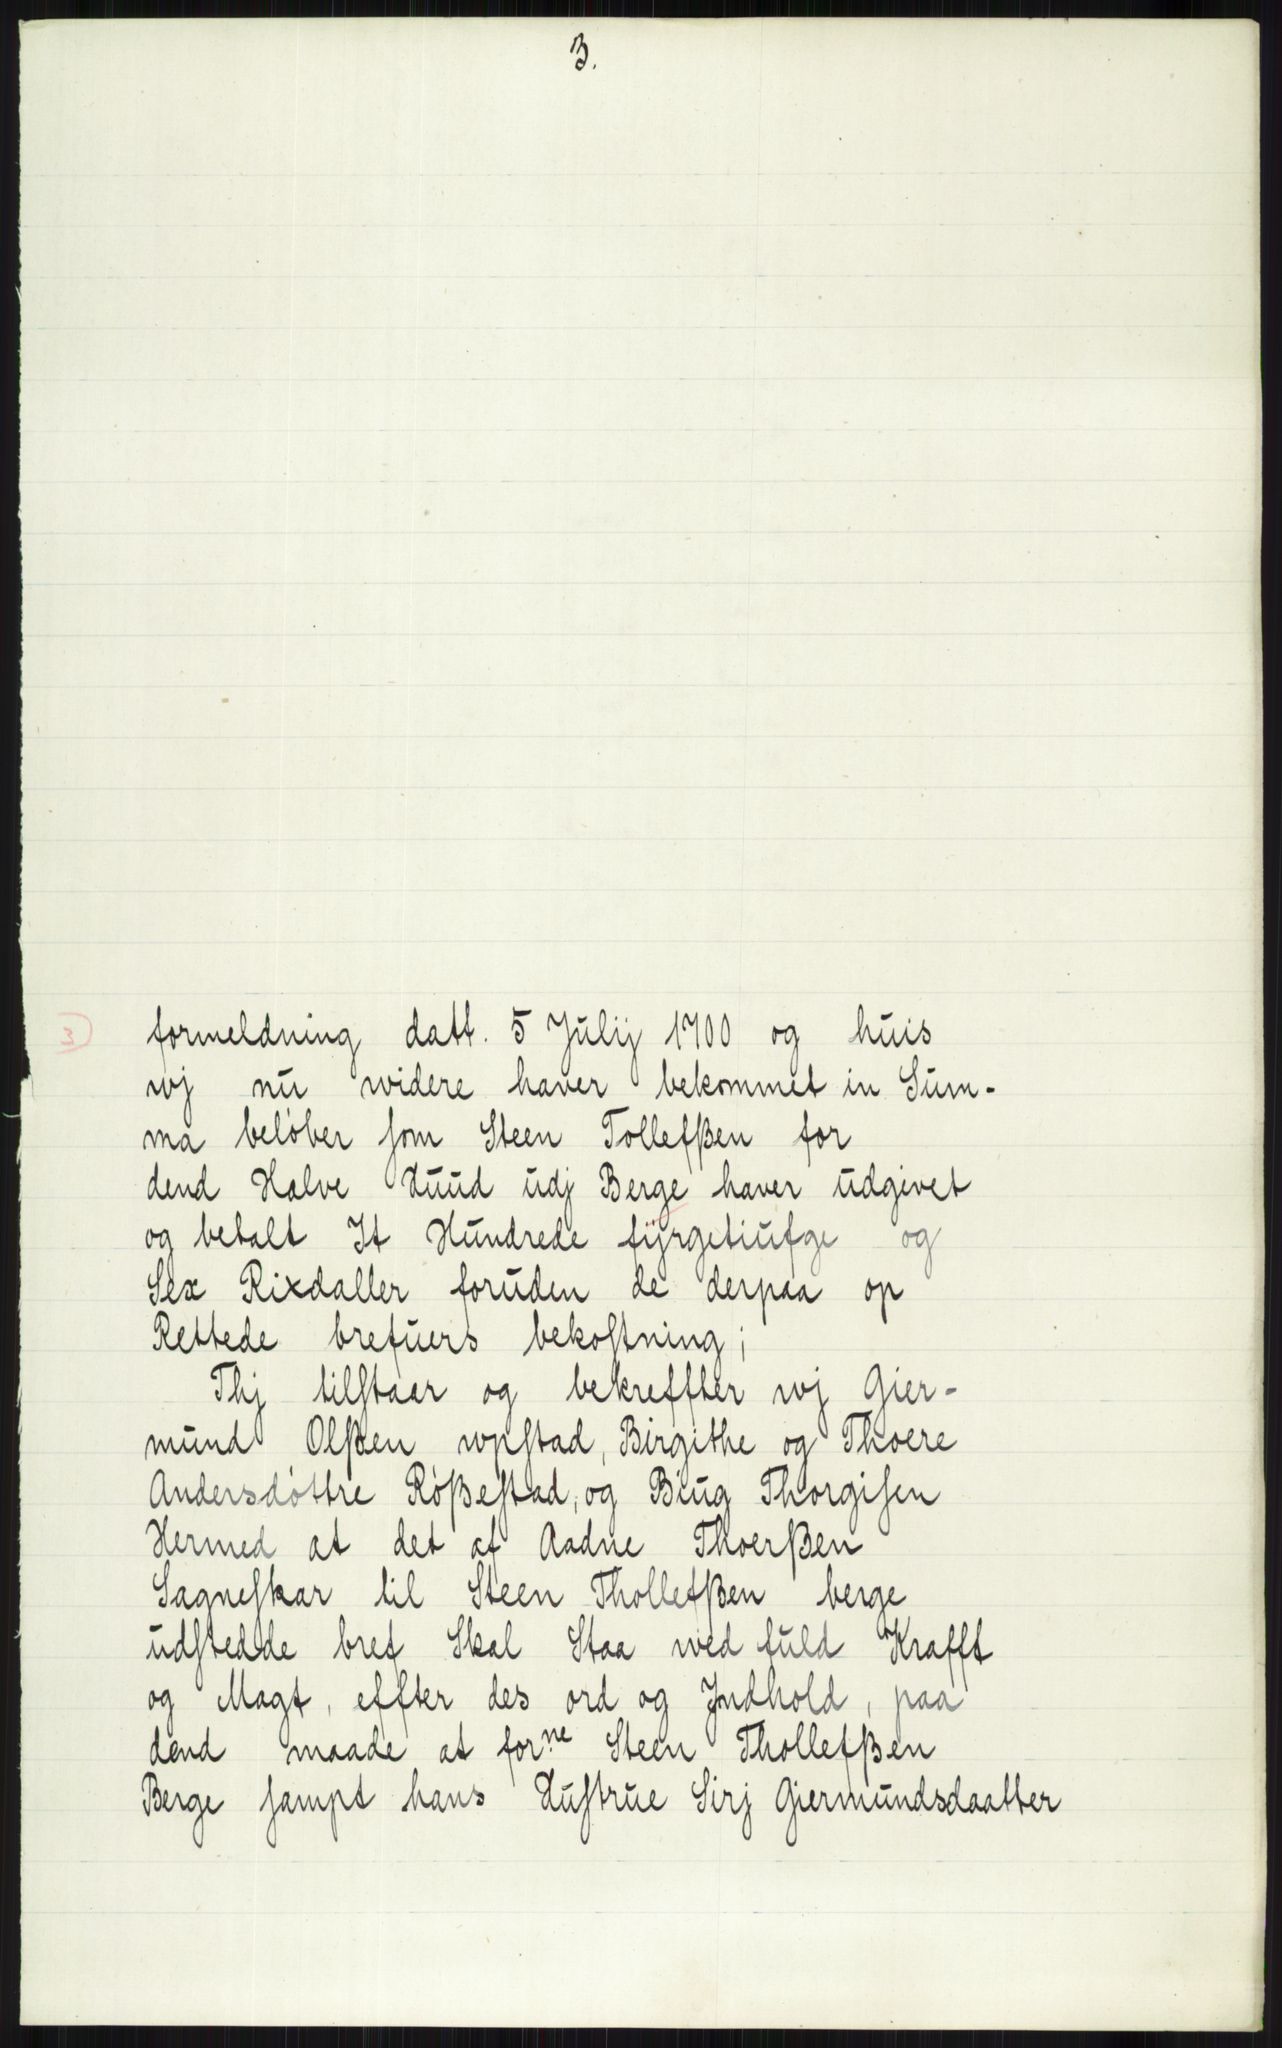 3.
3) formeldning datt. 5 Julij 1700 og huis
wj nu widere haver bekommet in Sum-
ma belöber som Steen Tollefßen for
dend Halve Huud udj Berge haver udgivet
og betalt It Hundrede fijrgetiufge og
Sex Rixdaller foruden de derpaa op
Rettede brefuers bekostning;
Thj tilstaar og bekreffter wj Gier-
mund Olßen wpstad, Birgithe og Thoere
Andersdöttre Rößestad, og Biug Thorgisen
Hermed at det af Aadne Thoerßen
Sagneskar til Steen Thollefßen berge
udstedde bref Skal Staa wed fuld Krafft
og Magt, effter des ord og Jndhold, paa
dend maade at for.ne Steen Thollefßen
Berge sampt hans Hustrue Sirj Giermundsdaatter